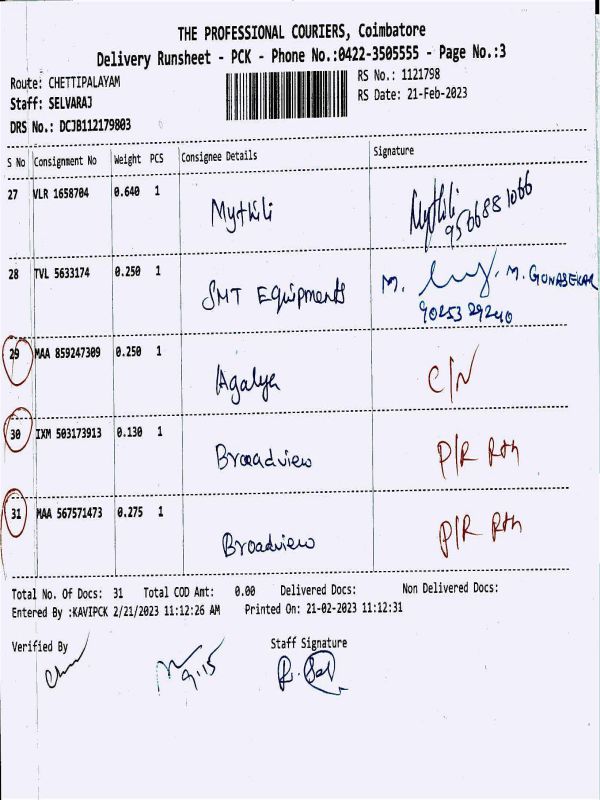 THE PROFESSIONAL COURIERS, Coimbatore
Delivery Runsheet - PCK - Phone No.:0422-3505555 - Page No.:3
Route: CHETTIPALAYAM
RS No.: 1121798
Staff: SELVARAJ
RS Date: 21-Feb-2023
DRS No.: DCJB112179803
S No Consignment No Weight PCS Consignee Details Signature
27 VLR 1658704 0.640 1 Mythili Mythili
9566881066
28 TVL 5633174 0.250 1 SMT Equipments M. M. GUNASEKAR
9025329240
29 MAA 859247309 0.250 1 Agalya C/N
30 IXM 503173913 0.130 1 Broadview P/R Rtn
31 MAA 567571473 0.275 1 Broadview P/R Rtn
Total No. Of Docs: 31 Total COD Amt: 0.00 Delivered Docs: Non Delivered Docs:
Entered By :KAVIPCK 2/21/2023 11:12:26 AM Printed On: 21-02-2023 11:12:31
Verified By Staff Signature
9.15